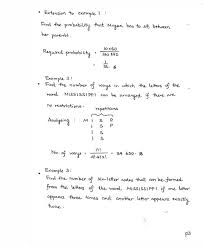 • Extension to example 1 :
Find the probability that Megan has to sit between
her parents.
Required probability =
• Example 2 :
Find the number of ways in which the letters of the
word MISSISSIPPI can be arranged if there are
no restrictions.
repetitions
Analysing : M I S P
I S P
I S
I S
No of ways = 11! / 4!4!2! = 34 650
• Example 3:
Find the number of six-letter codes that can be formed
from the letters of the word MISSISSIPPI if one letter
appears three times and another letter appears exactly
twice.